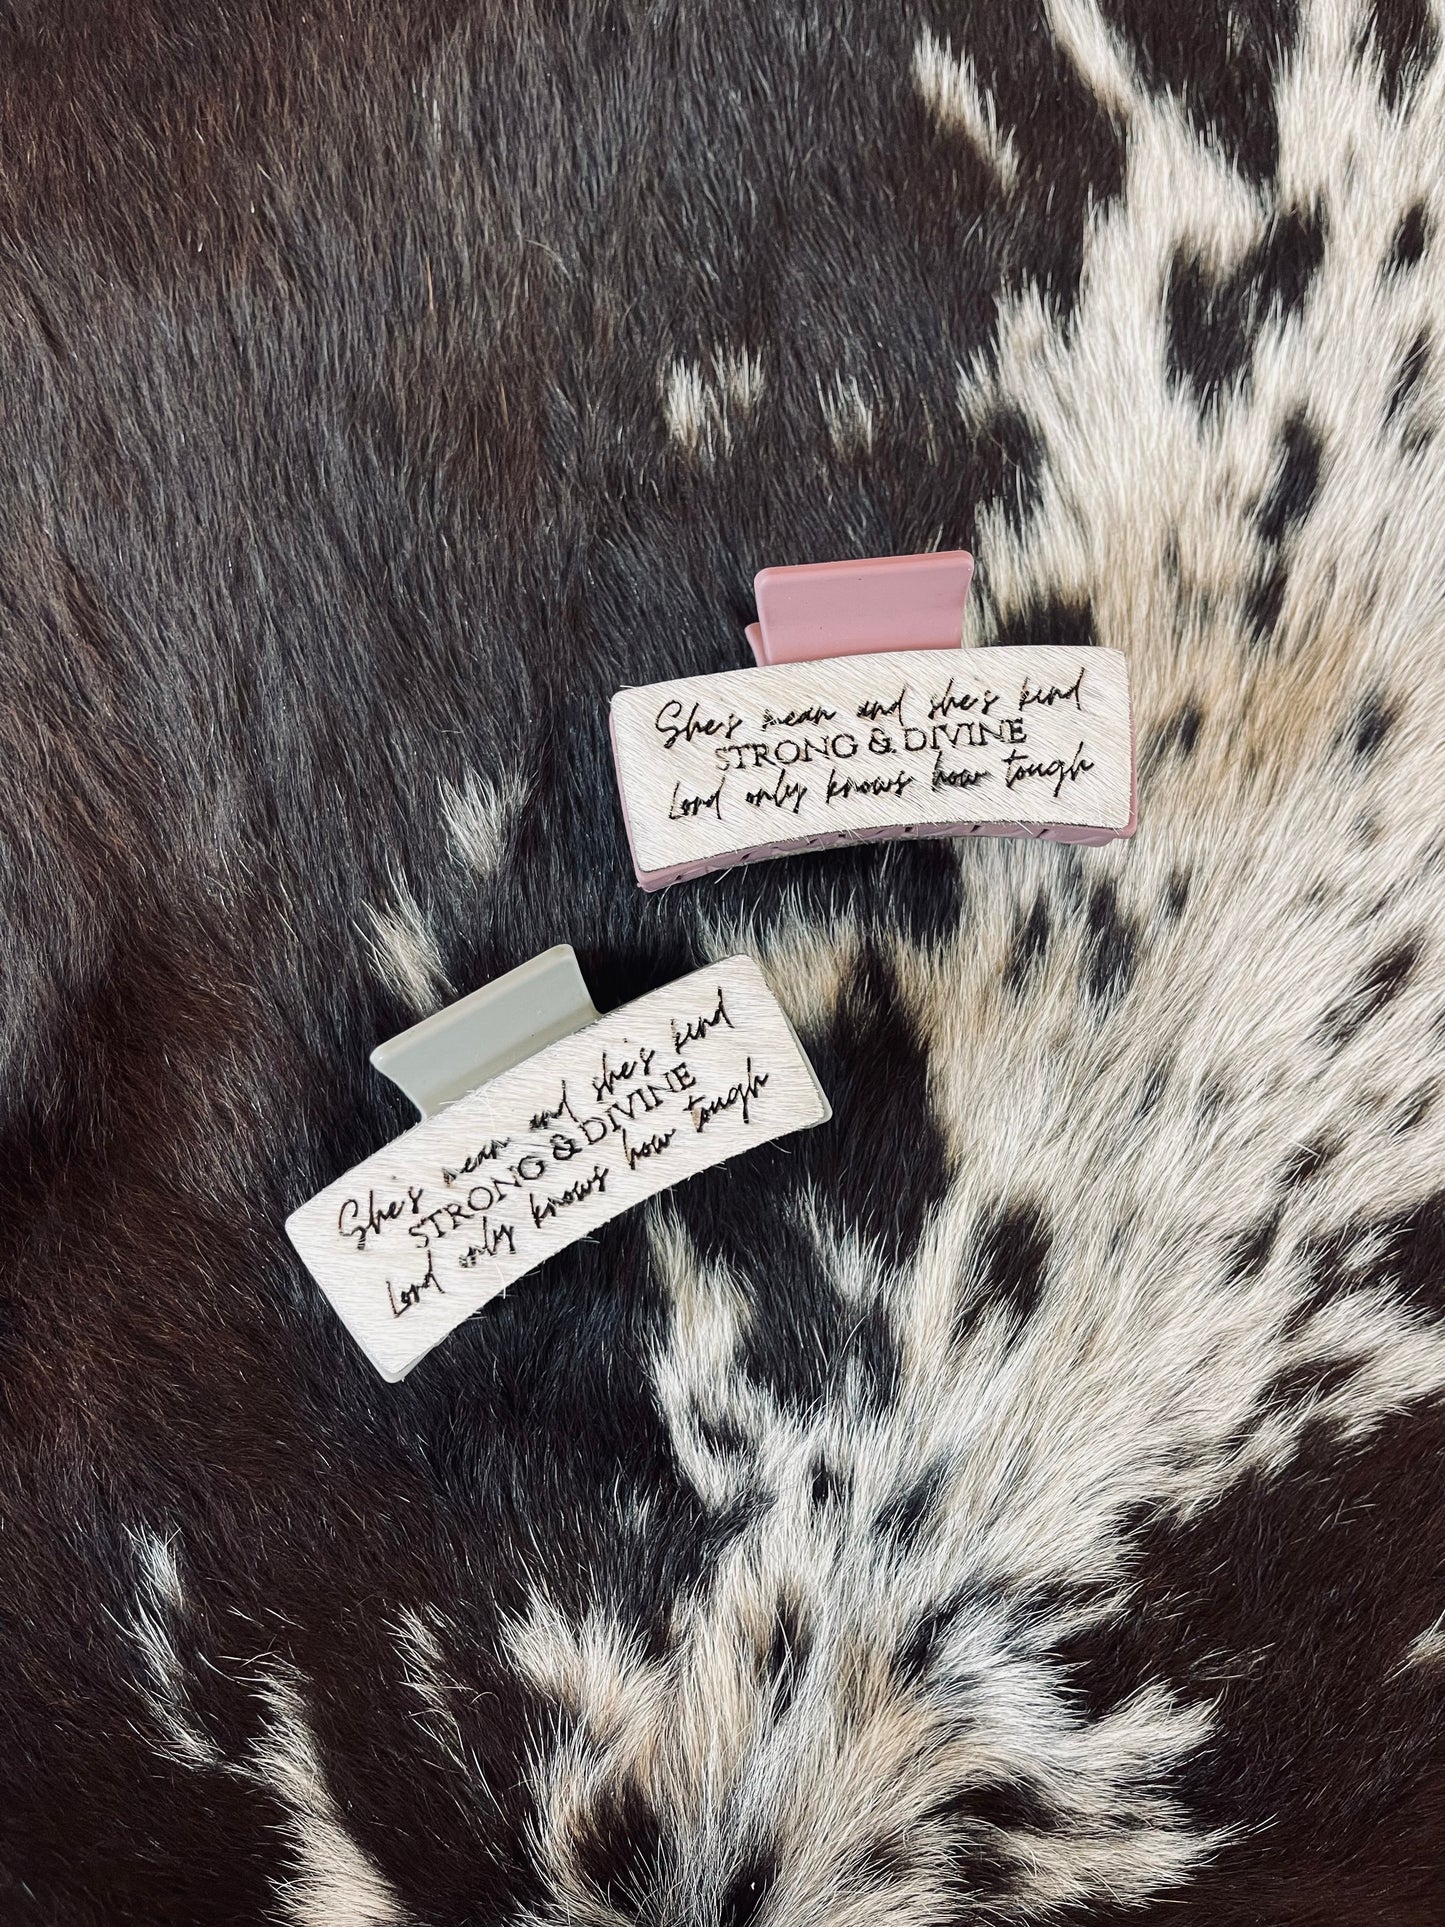 She's mean and she's kind
STRONG & DIVINE
Lord only knows how tough
She's mean and she's kind
STRONG & DIVINE
Lord only knows how tough